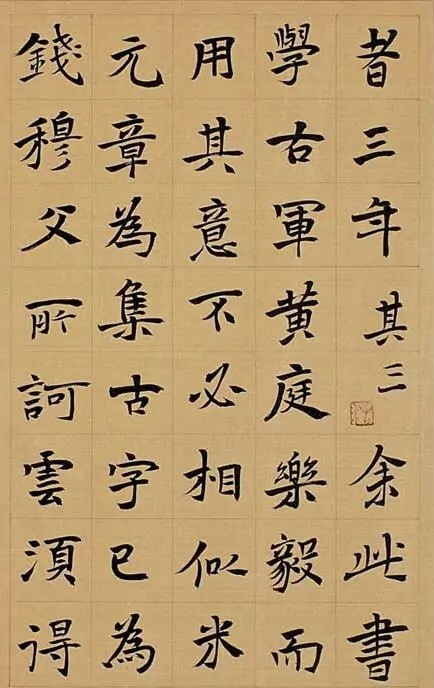 者三年 其三 余此書
學古軍黃庭樂毅而
用其意不必相似米
元章為集古字已為
錢穆父所訶雲湏得